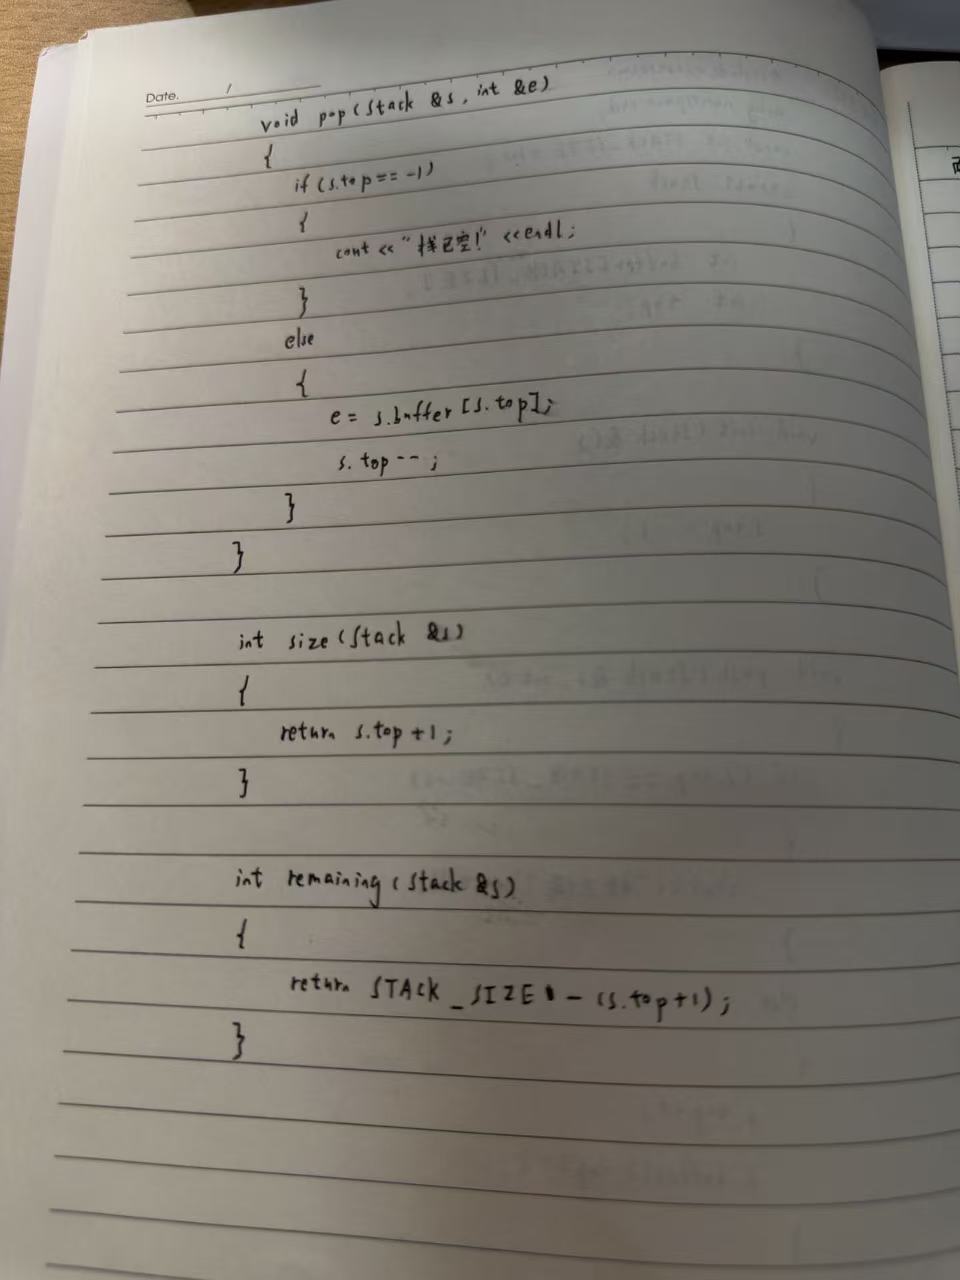 Date. /
void pop(Stack &s, int &e)
{
if (s.top == -1)
{
cout << "栈已空!" <<endl;
}
else
{
e = s.buffer[s.top];
s.top--;
}
}
int size(Stack &s)
{
return s.top+1;
}
int remaining(Stack &s)
{
return STACK_SIZE - (s.top+1);
}